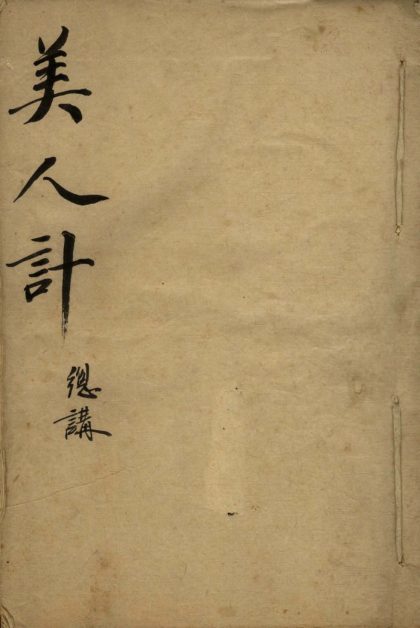 美人計
總講